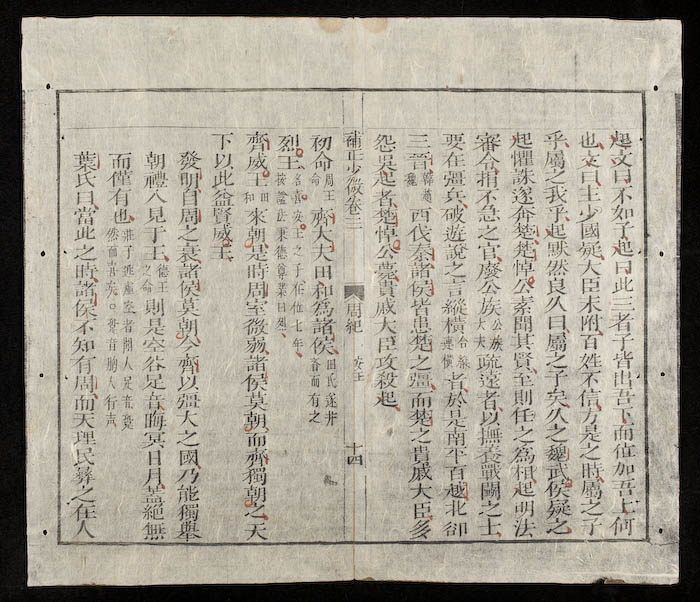 起文曰不如子起曰此三者子皆出吾下而位加吾上何
也文曰主少國疑大臣未附百姓不信方是之時屬之子
乎屬之我乎起默然良久曰屬之子矣久之魏武侯疑之
起懼誅遂奔楚楚悼公素聞其賢至則任之爲相起明法
審令捐不急之官廢公族公族大夫疏遠者以撫養戰鬭之士
要在彊兵破遊說之言縱橫合縱連橫者於是南平百越北卻
三晉韓趙魏西伐秦諸侯皆患楚之彊而楚之貴戚大臣多
怨吳起者楚悼公薨貴戚大臣攻殺起
補正少微卷三 周紀 安王 十四
初命周王命齊大夫田和爲諸侯田氏遂并齊而有之
烈王名喜安王之子在位七年按諡法秉德尊業曰烈
齊威王田和來朝是時周室微弱諸侯莫朝而齊獨朝之天
下以此益賢威王
發明自周之衰諸侯莫朝今齊以彊大之國乃能獨舉
朝禮入見于王德王之命則是空谷足音晦冥日月葢絕無
而僅有也莊子逃虛空者聞人足音跫然而喜矣跫音胸人行聲
葉氏曰當此之時諸侯不知有周而天理民彝之在人